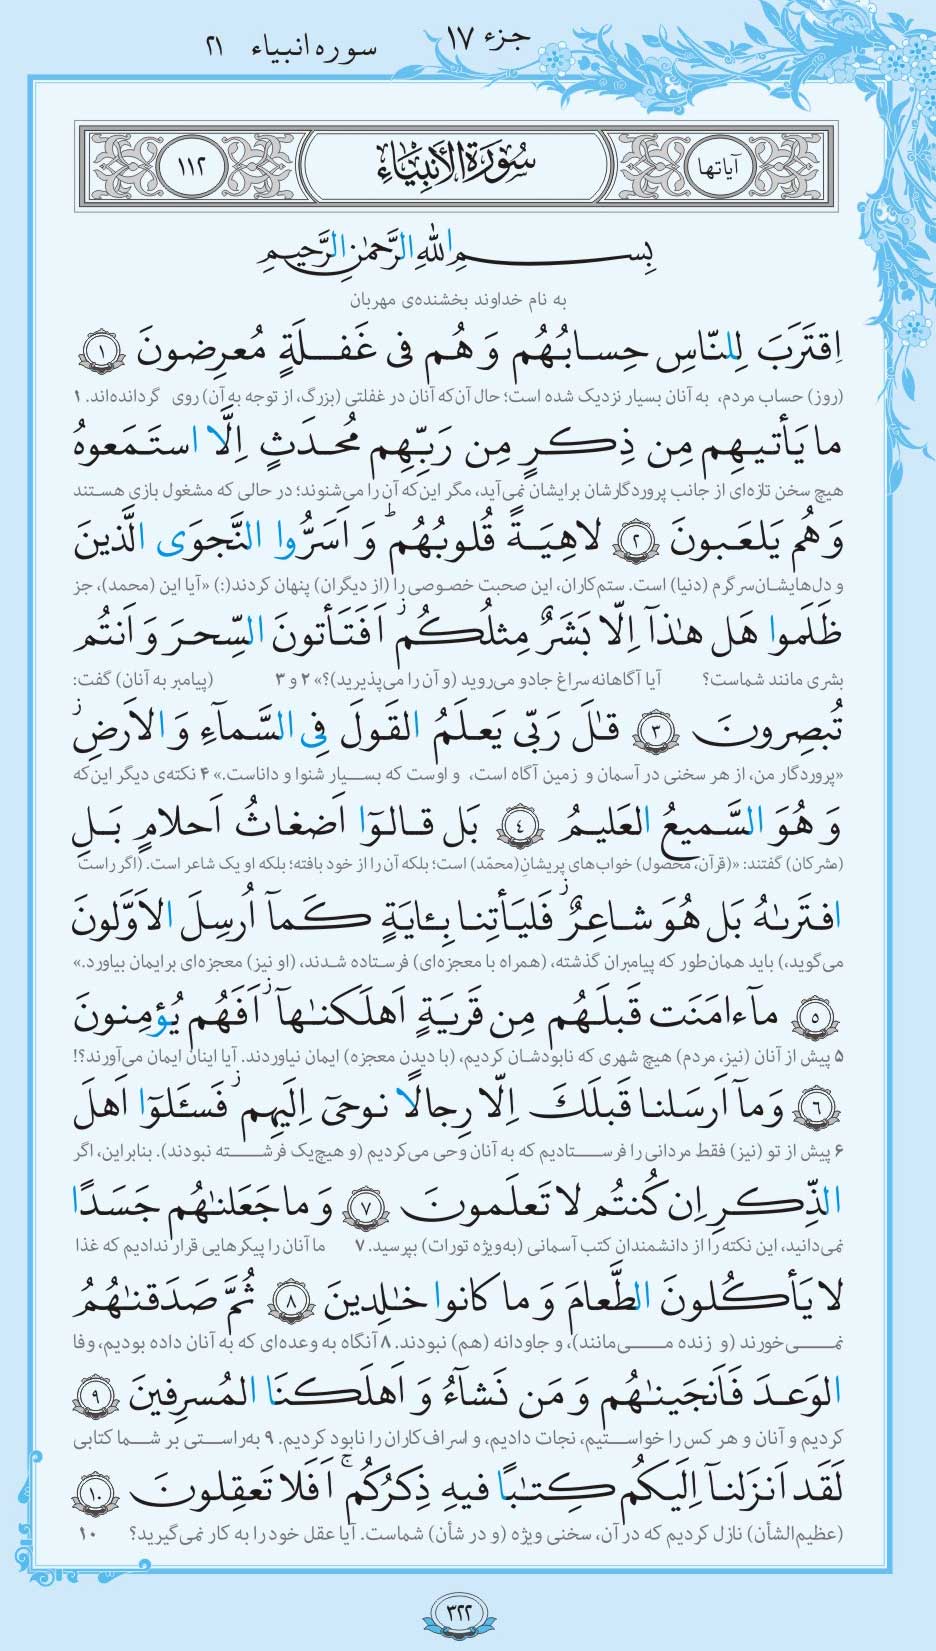 جزء ۱۷ سوره انبیاء ۲۱
آیاتها سُورَةُ الأَنبِيَاءِ ۱۱۲
بِسمِ اللّٰهِ الرَّحمٰنِ الرَّحيمِ
به نام خداوند بخشنده‌ی مهربان
اِقتَرَبَ لِلنّاسِ حِسابُهُم وَ هُم فى غَفلَةٍ مُعرِضونَ ١
(روز) حساب مردم، به آنان بسیار نزدیک شده است؛ حال آن‌که آنان در غفلتی (بزرگ، از توجه به آن) روی گردانده‌اند. ۱
ما يَأتيهِم مِن ذِكرٍ مِن رَبِّهِم مُحدَثٍ اِلَّا استَمَعوهُ
هیچ سخن تازه‌ای از جانب پروردگارشان برایشان نمی‌آید، مگر این‌که آن را می‌شنوند؛ در حالی که مشغول بازی هستند
وَ هُم يَلعَبونَ ٢ لاهِيَةً قُلوبُهُم ۗ وَ اَسَرُّوا النَّجوَى الَّذينَ
و دل‌هایشان سرگرم (دنیا) است. ستم‌کاران، این صحبت خصوصی را (از دیگران) پنهان کردند(:) «آیا این (محمد)، جز
ظَلَموا هَل هٰذآ اِلّا بَشَرٌ مِثلُكُم ۖ اَفَتَأتونَ السِّحرَ وَ اَنتُم
بشری مانند شماست؟ آیا آگاهانه سراغ جادو می‌روید (و آن را می‌پذیرید)؟» ۲ و ۳ (پیامبر به آنان) گفت:
تُبصِرونَ ٣ قالَ رَبّى يَعلَمُ القَولَ فِى السَّمآءِ وَ الاَرضِ ۖ
«پروردگار من، از هر سخنی در آسمان و زمین آگاه است، و اوست که بسیار شنوا و داناست.» ۴ نکته‌ی دیگر این‌که
وَ هُوَ السَّميعُ العَليمُ ٤ بَل قالوٓا اَضغاثُ اَحلامٍ بَلِ
(مشرکان) گفتند: «(قرآن، محصول) خواب‌های پریشانِ(محمّد) است؛ بلکه آن را از خود بافته؛ بلکه او یک شاعر است. (اگر راست
افتَرىٰهُ بَل هُوَ شاعِرٌ ۖ فَليَأتِنا بِـٔايَةٍ كَمآ اُرسِلَ الاَوَّلونَ
می‌گوید،) باید همان‌طور که پیامبران گذشته، (همراه با معجزه‌ای) فرستاده شدند، (او نیز) معجزه‌ای برایمان بیاورد.»
٥ مآ ءامَنَت قَبلَهُم مِن قَريَةٍ اَهلَكنٰهآ ۖ اَفَهُم يُؤمِنونَ
۵ پیش از آنان (نیز، مردم) هیچ شهری که نابودشان کردیم، (با دیدن معجزه) ایمان نیاوردند. آیا اینان ایمان می‌آورند؟!
٦ وَ مآ اَرسَلنا قَبلَكَ اِلّا رِجالًا نوحىٓ اِلَيهِم ۖ فَسـَٔلوٓا اَهلَ
۶ پیش از تو (نیز) فقط مردانی را فرستادیم که به آنان وحی می‌کردیم (و هیچ‌یک فرشته نبودند). بنابراین، اگر
الذِّكرِ اِن كُنتُم لا تَعلَمونَ ٧ وَ ما جَعَلنٰهُم جَسَدًا
نمی‌دانید، این نکته را از دانشمندان کتب آسمانی (به‌ویژه تورات) بپرسید. ۷ ما آنان را پیکرهایی قرار ندادیم که غذا
لا يَأكُلونَ الطَّعامَ وَ ما كانوا خٰلِدينَ ٨ ثُمَّ صَدَقنٰهُمُ
نمی‌خورند (و زنده می‌مانند)، و جاودانه (هم) نبودند. ۸ آنگاه به وعده‌ای که به آنان داده بودیم، وفا
الوَعدَ فَاَنجَينٰهُم وَ مَن نَشآءُ وَ اَهلَكنَا المُسرِفينَ ٩
کردیم و آنان و هر کس را خواستیم، نجات دادیم، و اسراف‌کاران را نابود کردیم. ۹ به‌راستی بر شما کتابی
لَقَد اَنزَلنآ اِلَيكُم كِتٰبًا فيهِ ذِكرُكُم ۚ اَفَلا تَعقِلونَ ١٠
(عظیم‌الشأن) نازل کردیم که در آن، سخنی ویژه (و در شأن) شماست. آیا عقل خود را به کار نمی‌گیرید؟ ۱۰
۳۲۲